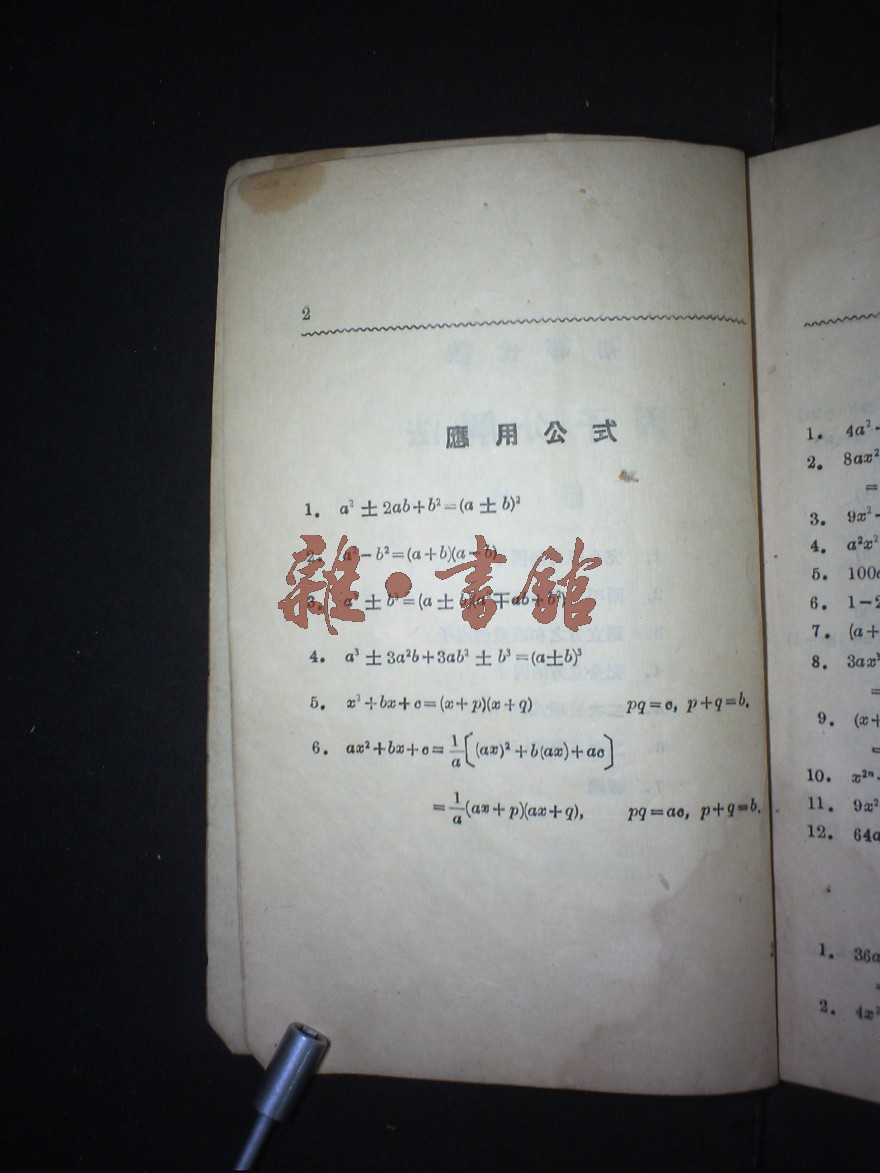 2
應用公式
1. a² ± 2ab+b²=(a ± b)²
2. a²−b²=(a+b)(a−b)
3. a³ ± b³=(a ± b)(a²∓ab+b²)
4. a³ ± 3a²b+3ab² ± b³=(a±b)³
5. x²+bx+c=(x+p)(x+q) pq=c, p+q=b.
6. ax²+bx+c=1/a[(ax)²+b(ax)+ac]
=1/a(ax+p)(ax+q), pq=ac, p+q=b.
雜·書館
1. 4a²-
2. 8ax²
=
3. 9x²-
4. a²x²
5. 100
6. 1−2
7. (a+
8. 3ax³
=
9. (x+
=
10. x²ⁿ-
11. 9x²
12. 64a
1. 36a
=
2. 4x²